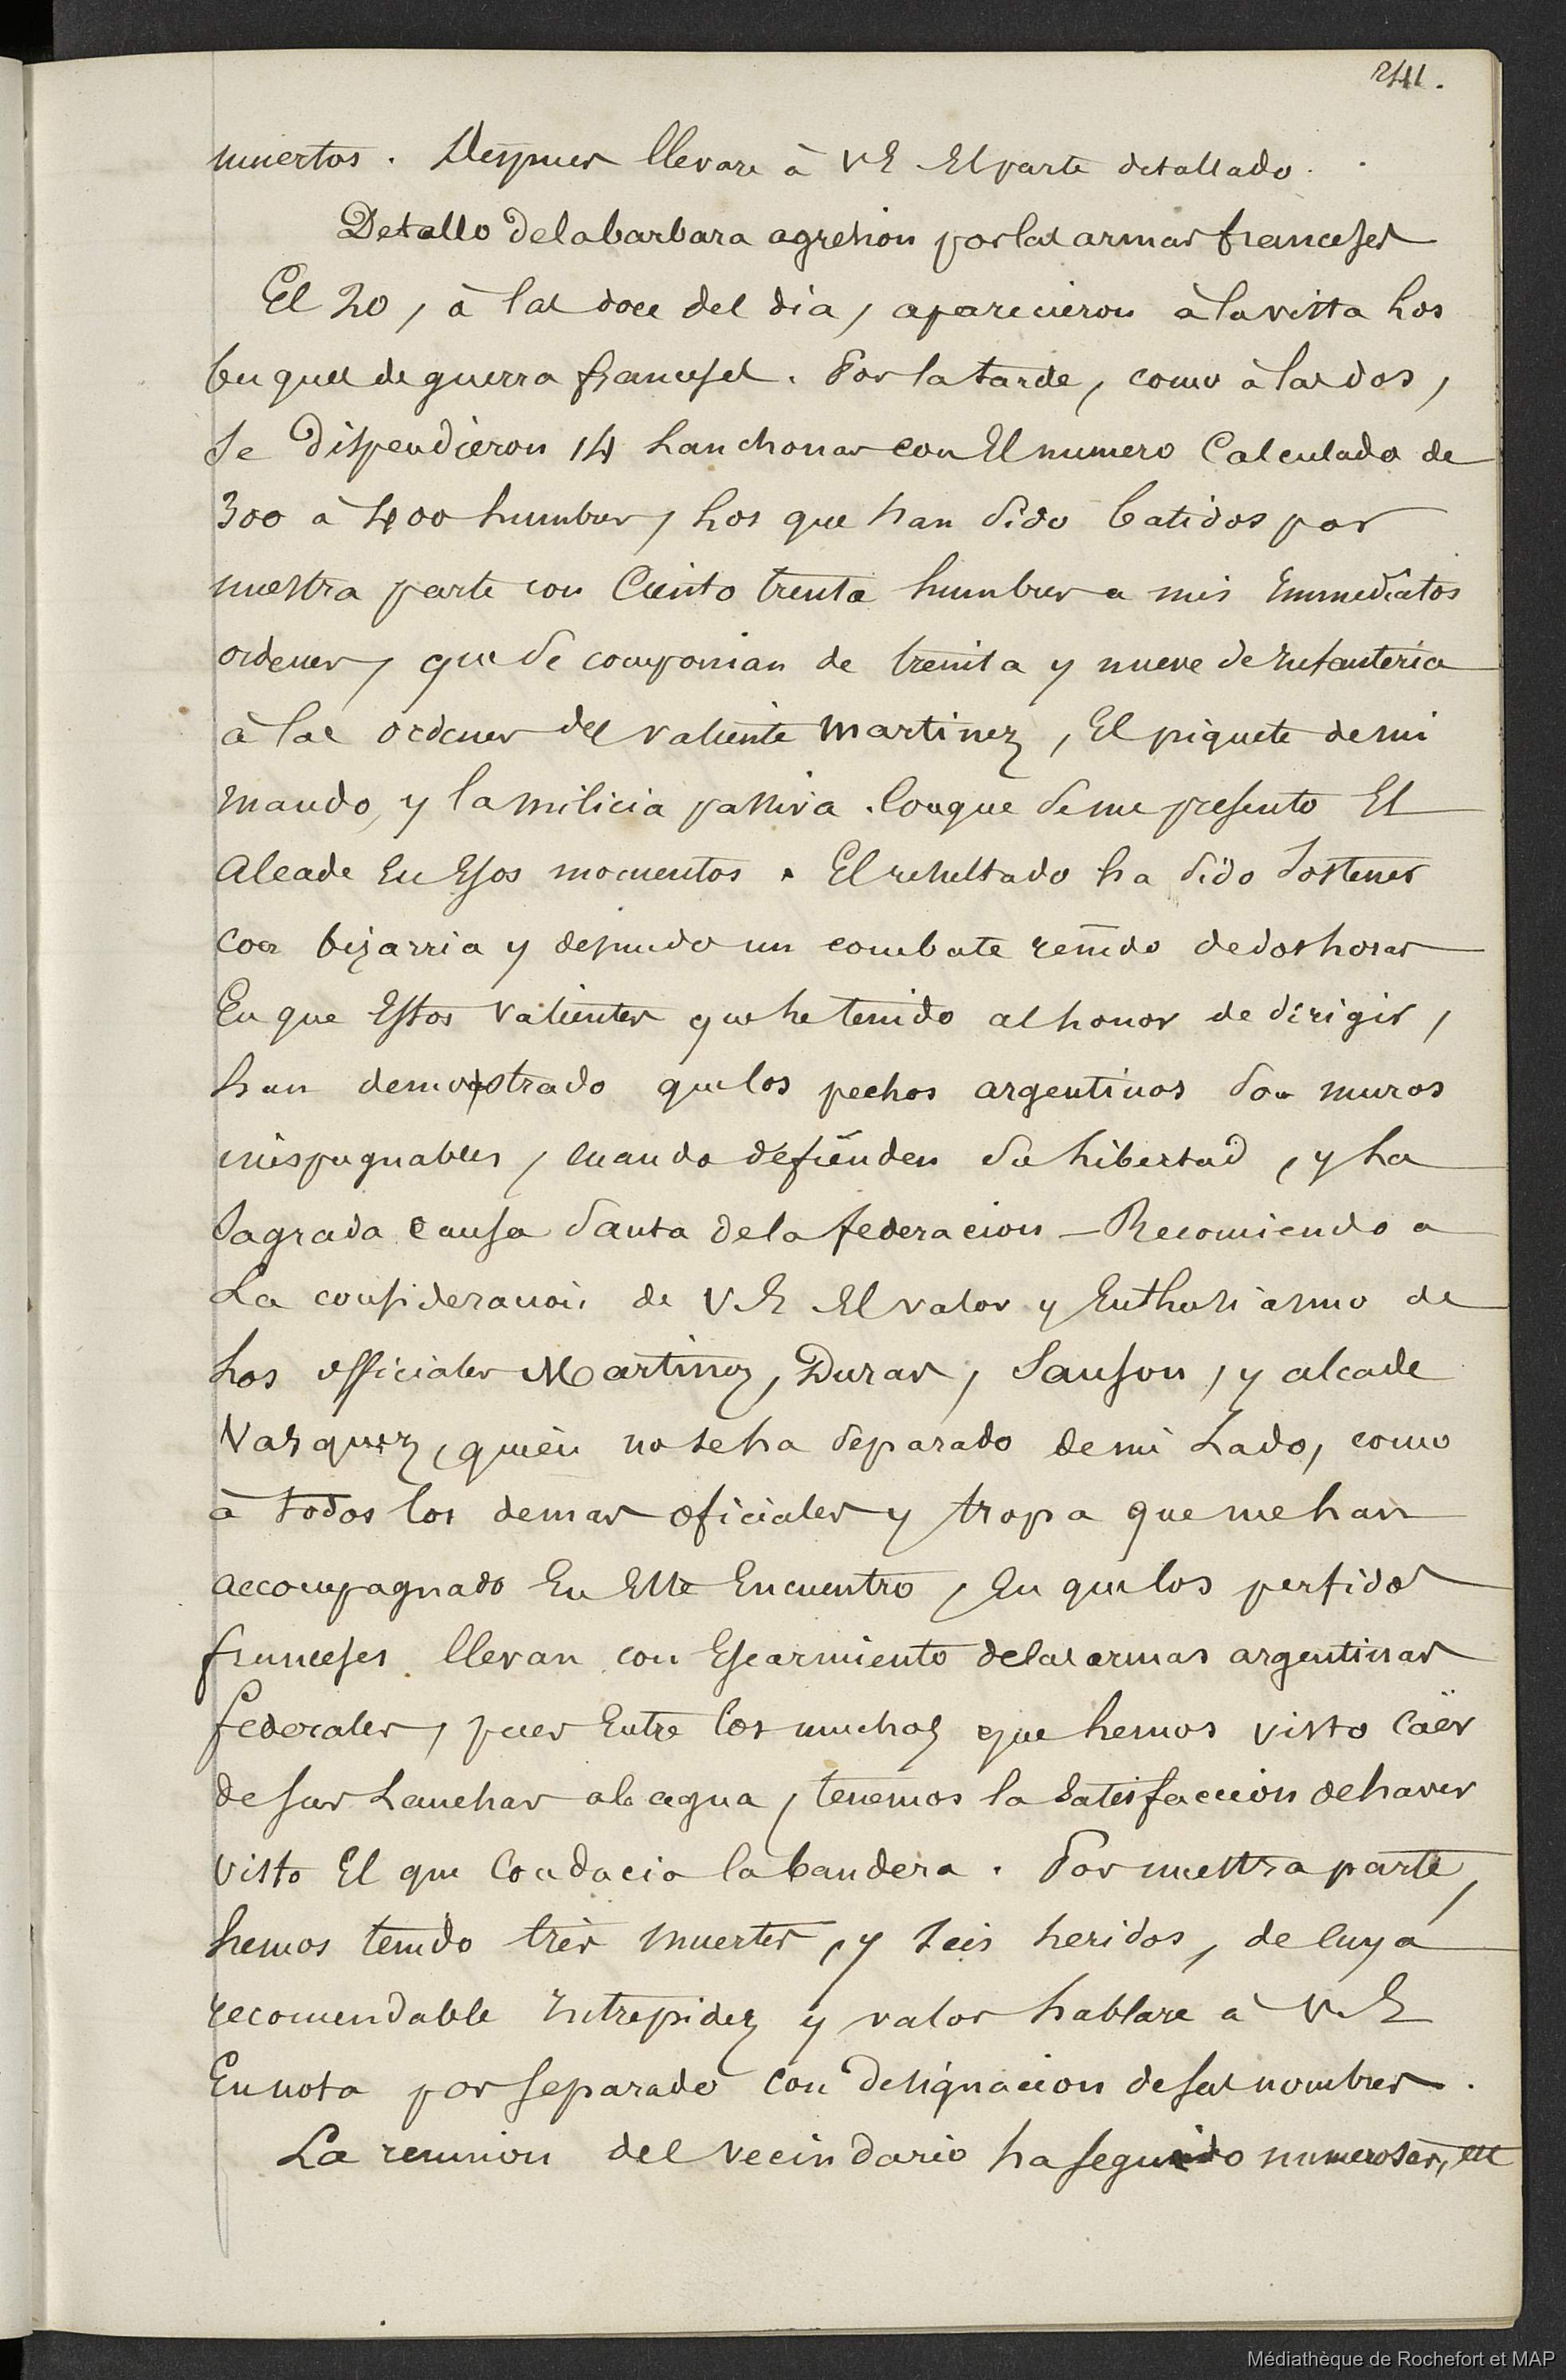 241.
muertos. Despues llevare à VE El parte detallado.
Detallo de la barbara agresion por las armas francesas
El 20, à las doce del dia, aparecieron à la vista los
buques de guerra franceses. Por la tarde, como à las dos,
se dispendieron 14 lanchonas con El numero Calculado de
300 a 400 humbres, los que han sido batidos por
nuestra parte con Ciento trenta humbres a mis Immediatos
ordenes, que se componian de treinta y nueve de Infanteria
à las ordenes del valiente Martinez, El piquete de mi
mando, y la milicia passiva. Con que se me presento El
Alcade En Esos momentos. El resultado ha sido sostener
con bizarria y denuedo un combate renido de dos horas
En que Estos valientes que he tenido al honor de dirigir,
han demostrado que los pechos argentinos son muros
inispugnables, cuando defienden su libertad, y la
sagrada causa santa de la federacion – Recomiendo a
La consideracion de V.E El valor y Enthusiasmo de
los officiales Martinez, Duran, Sanson, y alcade
Vasquez, quien no se ha separado de mi Lado, como
à todos los demas oficiales y tropa que me han
accompagnado En Este Encuentro, En que los perfidos
franceses llevan con Escarmiento de las armas argentinas
federales, pues Entre los muchos que hemos visto Caër
de sus Lanchas al agua, tenemos la satisfaccion de haver
visto El que Conducia la bandera. Por nuestra parte,
hemos tenido tres muertes, y seis heridos, de cuya
recomendable Intrepidez y valor hablare à V.E
En nota por separado con designacion de sus nombres.
La reunion del vecindario ha seguido numerosas, etc
Médiathèque de Rochefort et MAP